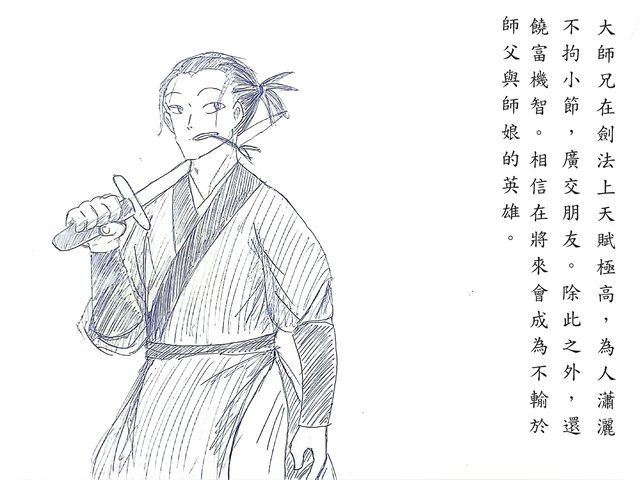 大師兄在劍法上天賦極高，為人瀟灑
不拘小節，廣交朋友。除此之外，還
饒富機智。相信在將來會成為不輸於
師父與師娘的英雄。